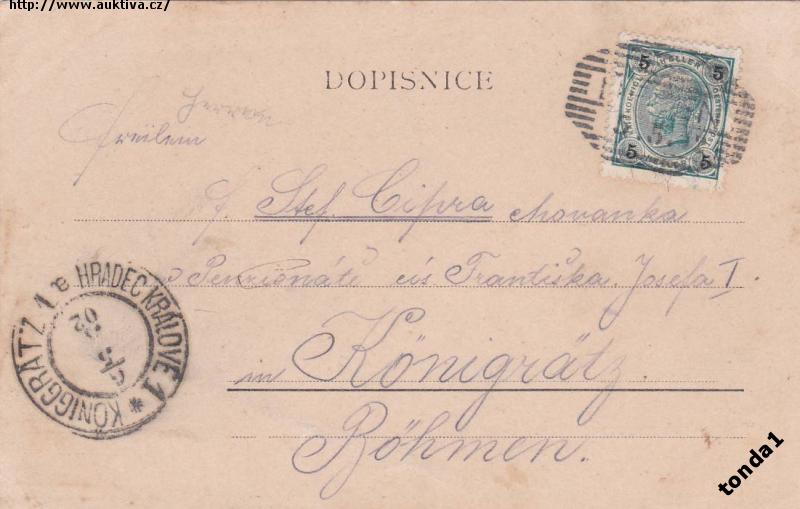 http://www.auktiva.cz/
DOPISNICE
5 5
5 5
Stef. Cipra chovanka
v Penzionátě cís Františka Josefa I
in Königrätz
Böhmen.
KÖNIGGRÄTZ 1 e HRADEC KRÁLOVÉ 1 *
tonda1